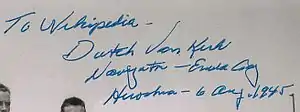 To Wikipedia -
Dutch Van Kirk
Navigator - Enola Gay
Hiroshima - 6 Aug. 1945